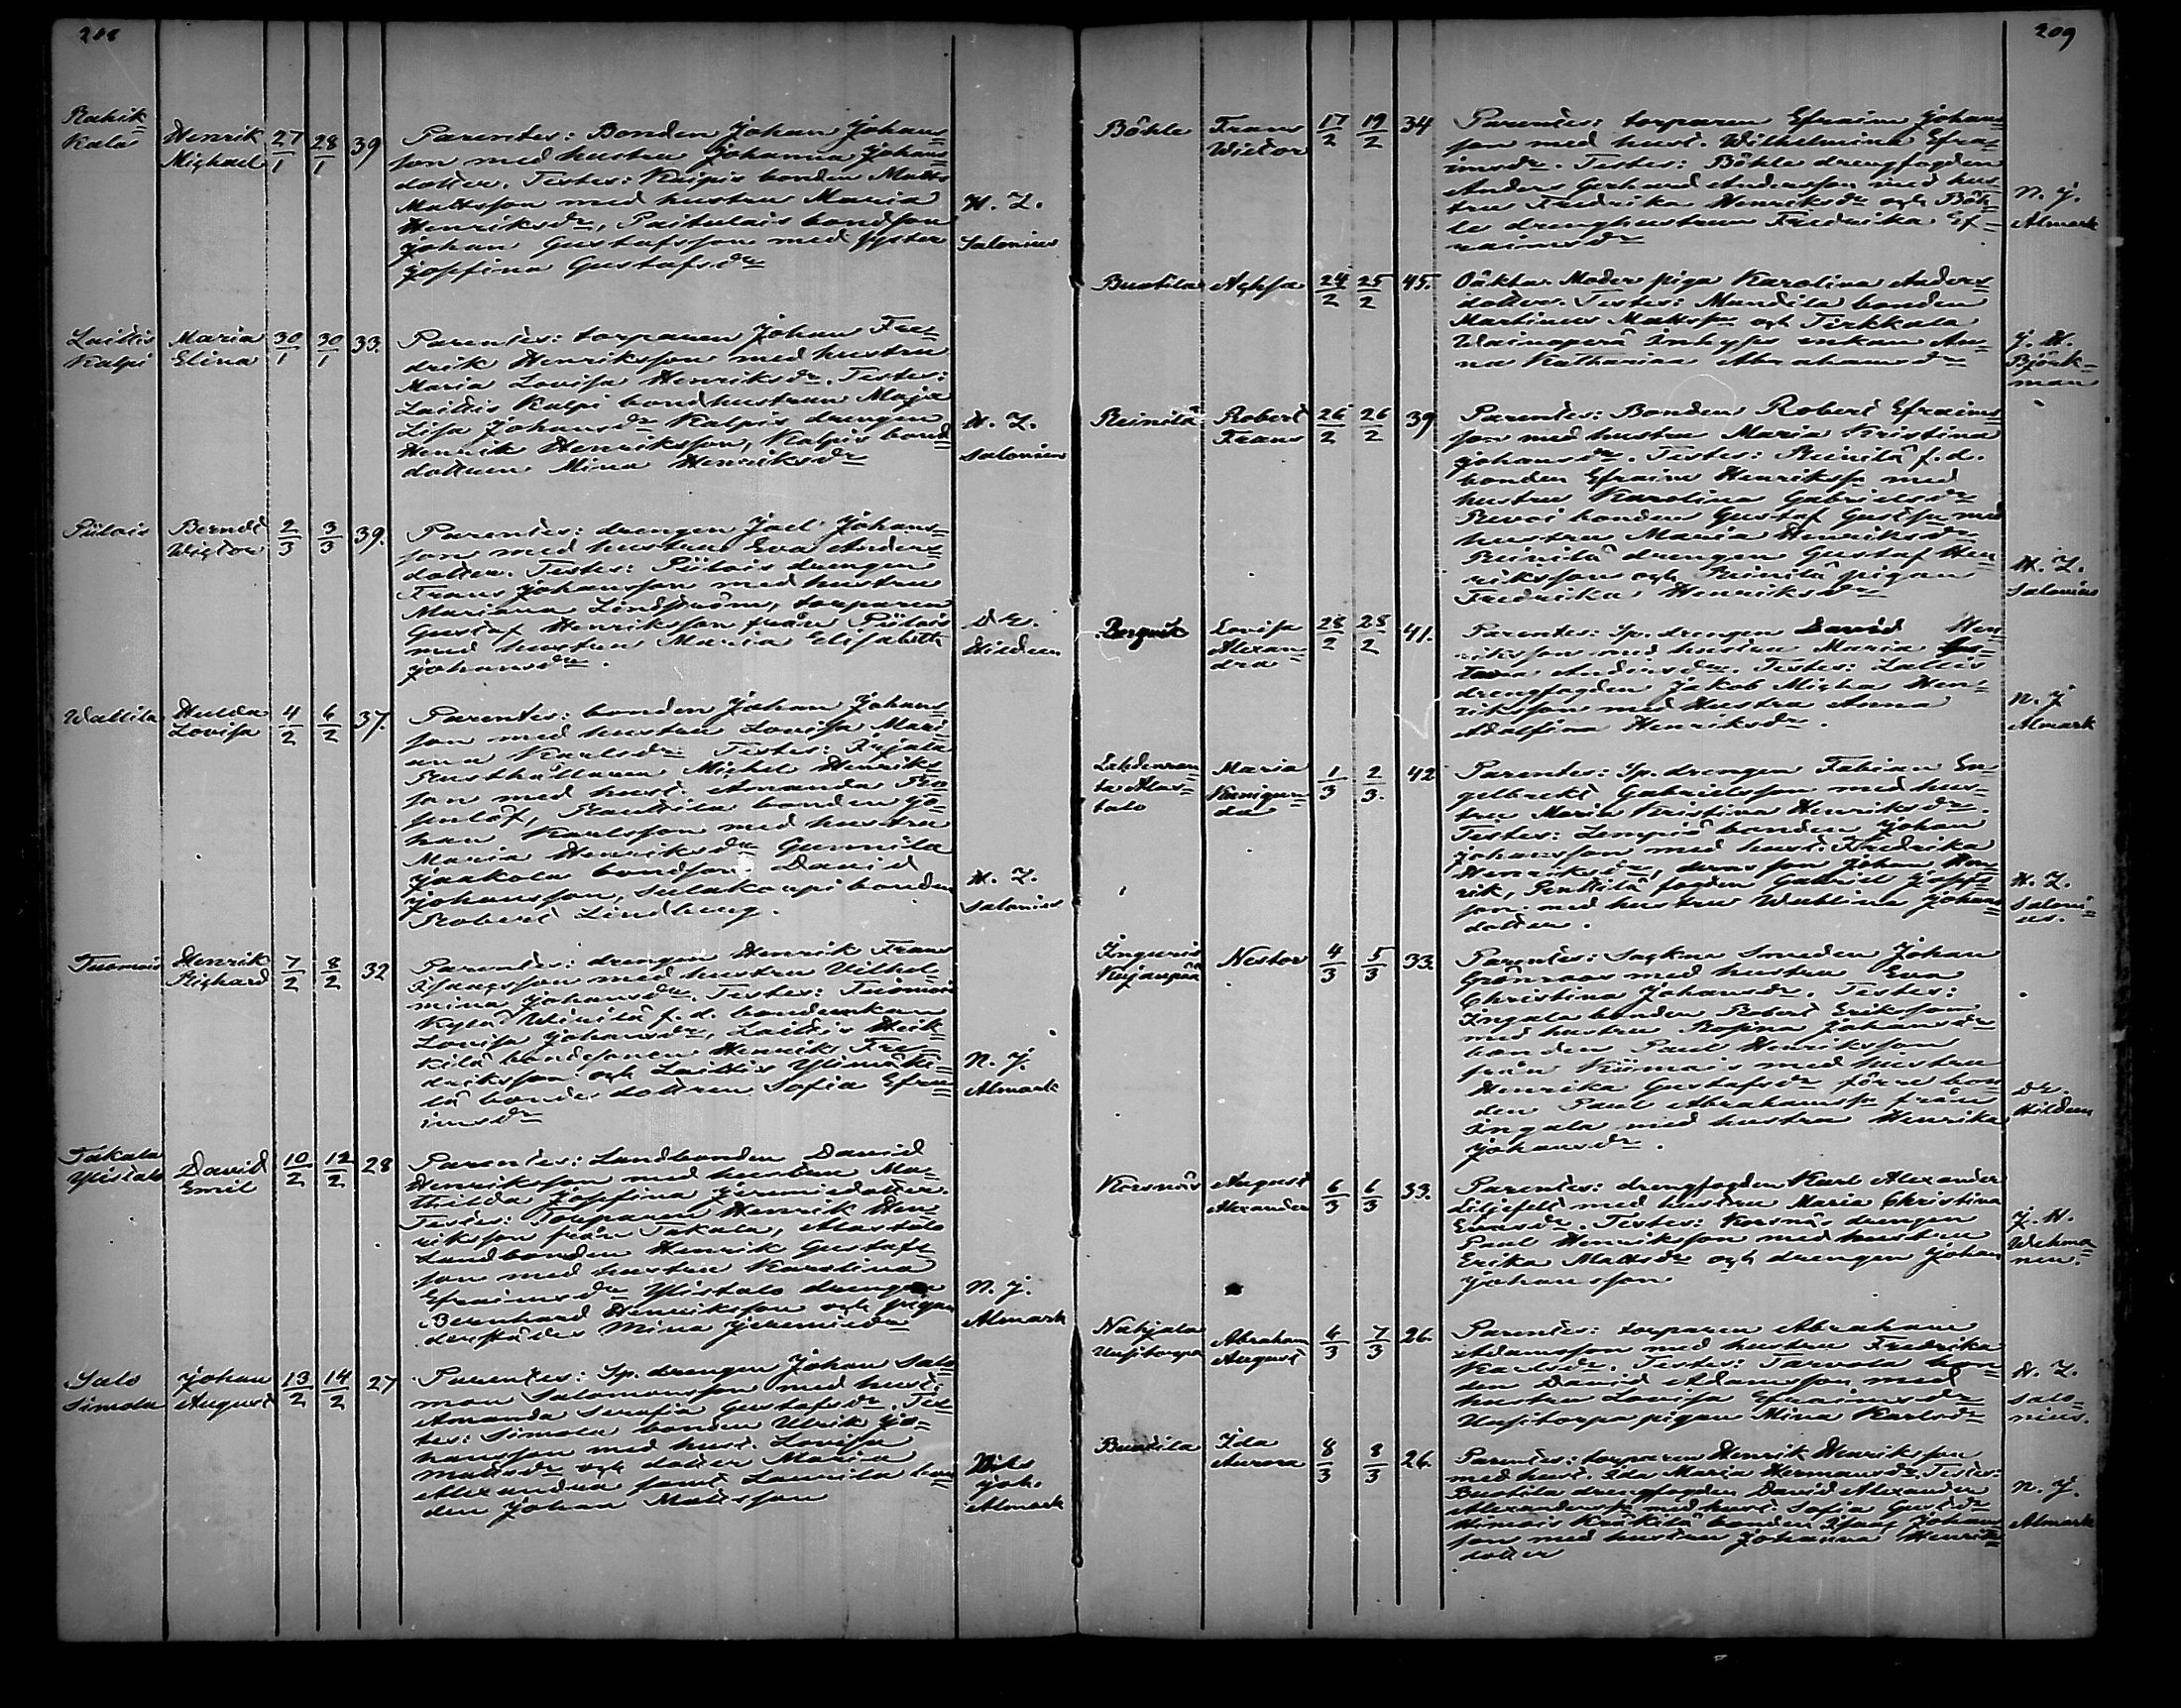 208
Rahik=
Kala
Henrik
Michael
27/1
28/1
39
Parentes: Bonden Johan Johans=
son med hustru Johanna Johans=
dotter. Testes: Knipis bonden Matts
Mattsson med hustru Maria
Henriksdr, Paitulais bondson
Johan Gustafsson med syster
Josefina Gustafsdr
H. Z.
Salonius
Laitis
Kalpi
Maria
Elina
30/1
30/1
33.
Parentes: torparen Johan Fre=
drik Henriksson med hustru
Maria Lovisa Henriksdr. Testes:
Laitis Kalpi bondhustrun Maja
Lisa Johansdr Kalpis drengen
Henrik Henriksson, Kalpis bond=
dottren Mina Henriksdr
H. Z.
Salonius
Piilois
Berndt
Victor
2/3
3/3
39.
Parentes: drengen Joel Johans=
son med hustru Eva Anders=
dotter. Testes: Piilois drengen
Frans Johansson med hustru
Mariana Lindström, torparen
Gustaf Henriksson från Piilois
med hustru Maria Elisabeth
Johansdr.
D E.
Hilden
Wallila
Hulda
Lovisa
4/2
6/2
37.
Parentes: bonden Johan Johans=
son med hustru Lovisa Mari=
ana Karlsdr Testes:
Rusthållaren Michel Henriks=
son med hust. Amanda
bonden Jo=
han Karlsson med hustru
Maria Henriksdr Gunnila
Jaakola bondson David
Johansson, Sulakoupi bonden
Robert Lindberg.
H. Z.
Salonius
Tuomois
Henrik
Richard
7/2
8/2
32
Parentes: drengen Henrik Frans
Isaacsson med hustru Vilhel=
mina Johansdr. Testes: Tuomois
Kylä Winilä f.d. bondenkan
Lovisa Johansdr, Laitis Heik=
kilä bondesonen Henrik Fre=
driksson och Laitis Ylimäki=
lä bonde dottren Sofia Efra=
imsdr
N. J.
Almark
Takala
Ylistalo
David
Emil
10/2
12/2
28
Parentes: Landbonden David
Henriksson med hustru Ma=
thilda Josefina Jeremiedotter.
Testes: Torparen Henrik Hen=
riksson från Takala, Alastalo
Landbonden Henrik Gustafs=
son med hustru Karolina
Efraimsdr Ylistalo drengen
Bernhard Henriksson och pigan
derstädes Mina Jeremiedr
N. J.
Almark
Salo
Simola
Johan
August
13/2
14/2
27
Parentes: Sp. drengen Johan Salo=
mon Salomonsson med hust.
Amanda Serafia Gustafsdr. Tes=
tes: Simola bonden Ulrik Jo=
hansson med hust. Lovisa
Mattsdr och dotter Maria
Alexandra samt Laurila bon=
den Johan Mattsson
Nils
Joh.
Almark
209
Böhle
Frans
Wictor
17/2
19/2
34
Parentes: torparen Efraim Johans=
son med hust. Wilhelmina Efra=
imsdr. Testes: Böhle drengfogden
Anders Gerhard Andersson med hus=
tru Fredrika Henriksdr och Böh=
le drenghustrun Fredrika Ef=
raimsdr
N. J.
Almark
Buotila
24/2
25/2
45.
Oäkta. Moder piga Karolina Anders=
dotter. Testes: Mundila bonden
Martinus Mattsson och Tirkkala
Wainoperä inhyses enkan An=
na Katharina Abrahamsdr
J. H.
Björk=
man
Reinilä
Robert
Frans
26/2
26/2
39
Parentes: Bonden Robert Efraims=
son med hustru Maria Kristina
Johansdr. Testes: Reinilä f.d.
bonden Efraim Henrikss. med
hustru Karolina Gabrielsdr
bonden Gustaf Gustfs. med
hustru Maria Henriksdr
Reinilä drengen Gustaf Hen=
riksson och Reinilä pigan
Fredrika Henriksdr
H. Z.
Salonius
Bergvik
Lovisa
Alexan=
dra
28/2
28/2
41.
Parentes: Sp. drengen David Hen=
riksson med hustru Maria Gus=
tava Andersdr. Testes: Lallis
drengfogden Jakob Micha Hen=
riksson med Hustru Anna
Adolfina Henriksdr.
N. J
Almark
Lahdenran=
ta Alas=
talo
Maria
Kunigun=
da
1/3
2/3.
42
Parentes: Sp. drengen Fabian En=
gelbrekt Gabrielsson med hus=
tru Maria Kristina Henriksdr.
Testes: Lempis bonden Johan
Johansson med hust Fredrika
Henriksdr, deras son Johan Hen=
rik, Penttilä fogden Gabriel Josefs=
son med hustru Wublina Johans=
dotter.
H. Z.
Saloni=
us.
Inguris
Kujanpää
Nestor
4/3
5/3
33.
Parentes: Sockne Smeden Johan
Grönroos med hustru Eva
Christina Johansdr. Testes:
Ingala bonden Robert Eriksson
med hustru Rosina Johansdr
bonden Paul Henriksson
från Kiimais med hustru
Henrika Gustafsdr förre bon=
den Paul Abrahamss. från
Ingala med hustru Henrika
Johansdr.
D E.
Hilden
Korsnäs
August
Alexander
6/3
6/3
33.
Parentes: drengfogden Karl Alexander
Liljefelt med hustru Maria Christina
Evasdr. Testes: Korsnäs drengen
Paul Henriksson med hustru
Erika Mattsdr och drengen Johan
Johansson
J. H.
Wehma=
nen.
Nahjala
Uusitorpa
Abraham
August
4/3
7/3
26.
Parentes: torparen Abraham
Adamsson med hustru Fredrika
Karlsdr. Testes: Tarvola bon=
den David Adamsson med
hustru Lovisa Efraimsdr
Uusitorpa pigan Mina Karlsdr
H. Z.
Salo=
nius.
Buotila
Ida
Aurora
8/3
8/3
26.
Parentes: torparen Henrik Henriksson
med hust. Ida Maria Hermansdr. Testes:
Buotila drengfogden David Alexander
Alexanderss. med hust. Sofia Gustdr
Himois Kräkilä bonden Isaac Johans=
son med hustru Johanna Henriks=
dotter
N. J.
Almark